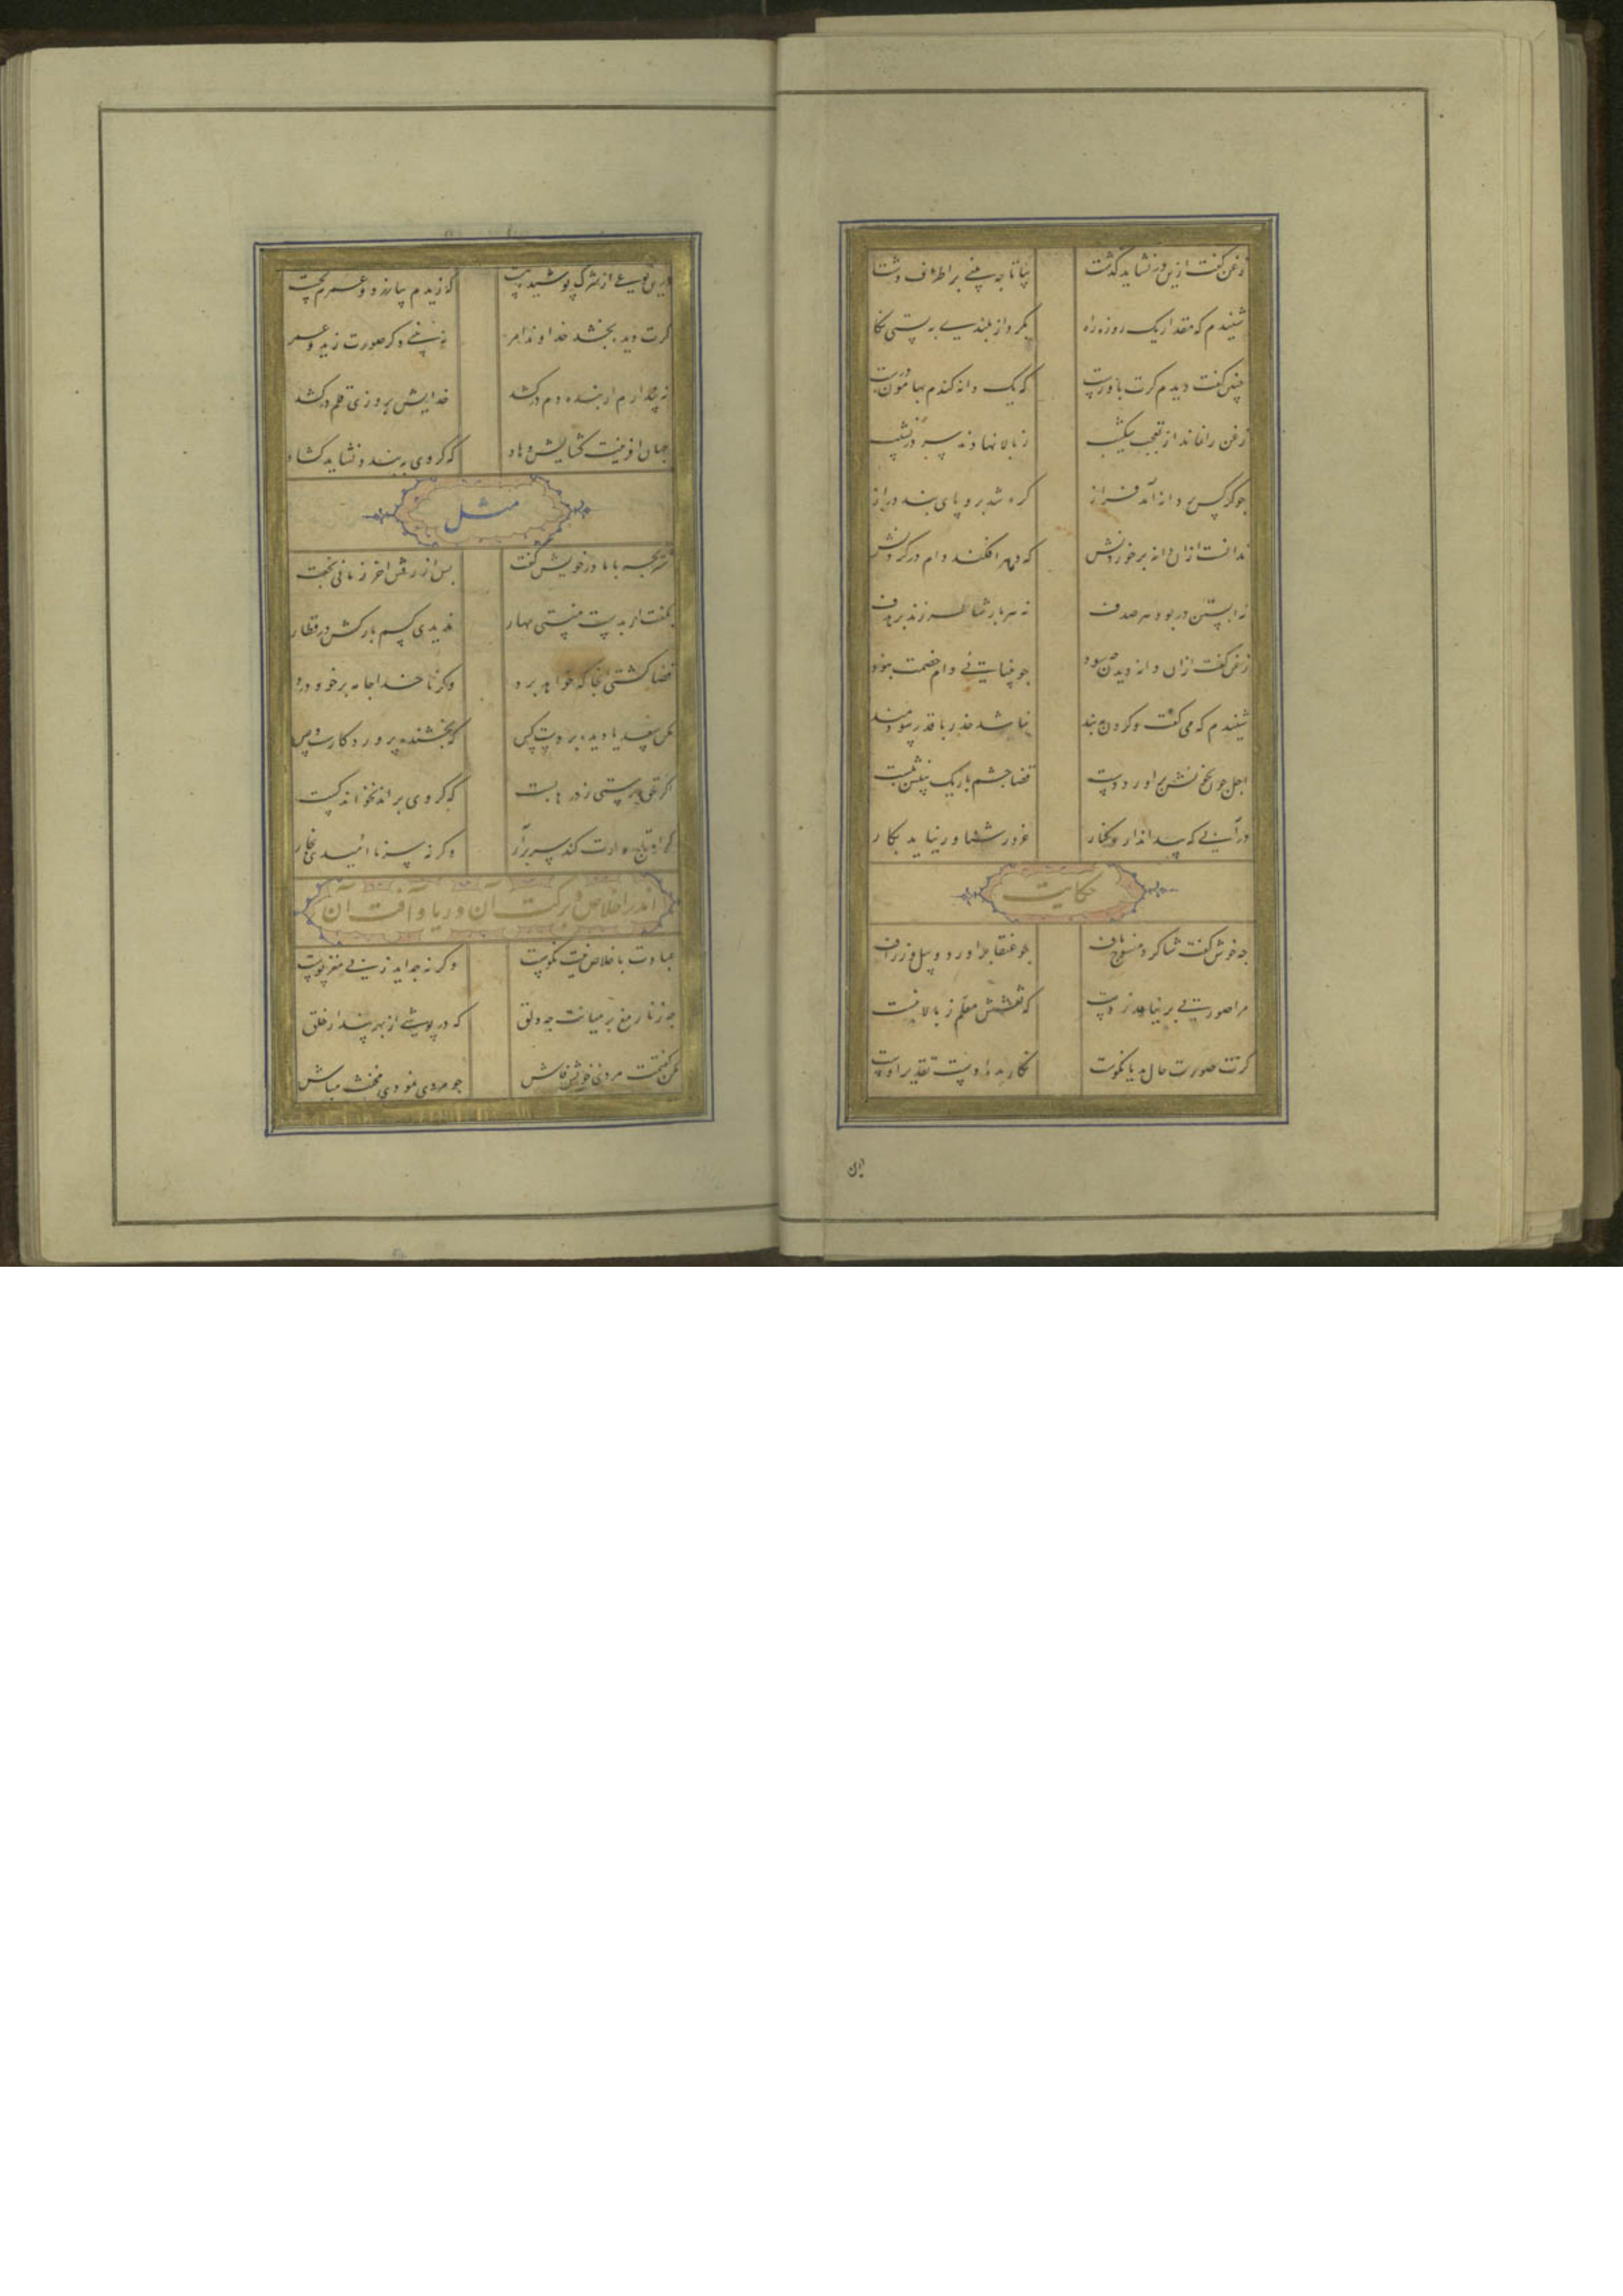 زغن گفت ازین در نشاید گذشت
بیا تا چه بینی بر اطراف دشت
شنیدم که مقدار یک روزه راه
بکرد از بلندی به پستی نگاه
چنین گفت دیدم گرت باورست
که یک دانه گندم بهامون درست
زغن را نماند از تعجب شکیب
ز بالا نهادند سر در نشیب
چو کرکس بر دانه آمد فراز
گره شد برو پای بند دراز
ندانست ازان دانه بر خوردنش
که دهر افکند دام در گردنش
نه آبستن در بود هر صدف
نه هر بار شاطر زند بر هدف
زغن گفت ازان دانه دیدن چه سود
چو بینایی دام خصمت نبود
شنیدم که می گفت و گردن ببند
نباشد حذر با قدر سودمند
اجل چون بخونش بر آورد دست
قضا چشم باریک بینش ببست
در آبی که پیدا ندارد کنار
غرور شناور نیاید بکار
حکایت
چه خوش گفت شاگرد منسوج باف
چو عنقا بر آورد و پیل و زراف
مرا صورتی بر نیاید ز دست
که نقشش معلم ز بالا نبست
گرت صورت حال بد یا نکوست
نگارنده دست تقدیر اوست
این
درین نوعی از شرک پوشیده هست
که زیدم بیازرد و عمرم بخست
گرت دیده بخشد خداوند امر
نه بینی دگر صورت زید و عمرو
نه پندارم ار بنده دم درکشد
خدایش بروزی قلم درکشد
جهان آفرینت گشایش دهاد
که گر وی ببندد نشاید گشاد
مثل
شتر بچه با مادر خویش گفت
پس از رفتن آخر زمانی بخفت
بگفت ار بدست منستی مهار
ندیدی کسم بارکش در قطار
قضا کشتی آنجا که خواهد برد
وگر ناخدا جامه بر خود درد
مکن سعدیا دیده بر دست کس
که بخشنده پروردگارست و بس
اگر حق پرستی ز درها بست
که گر وی براند نخواند کست
گر او تاجدارت کند سر برآر
وگرنه سر ناامیدی بخار
اندر اخلاص و برکت آن و ریا و آفت آن
عبادت باخلاص نیت نکوست
وگرنه چه اید ز بی مغز پوست
چه زنار مغ بر میانت چه دلق
که در پوشی از بهر پندار خلق
مکن گفتمت مردی خویش فاش
چو مردی نمودی مخنث مباش